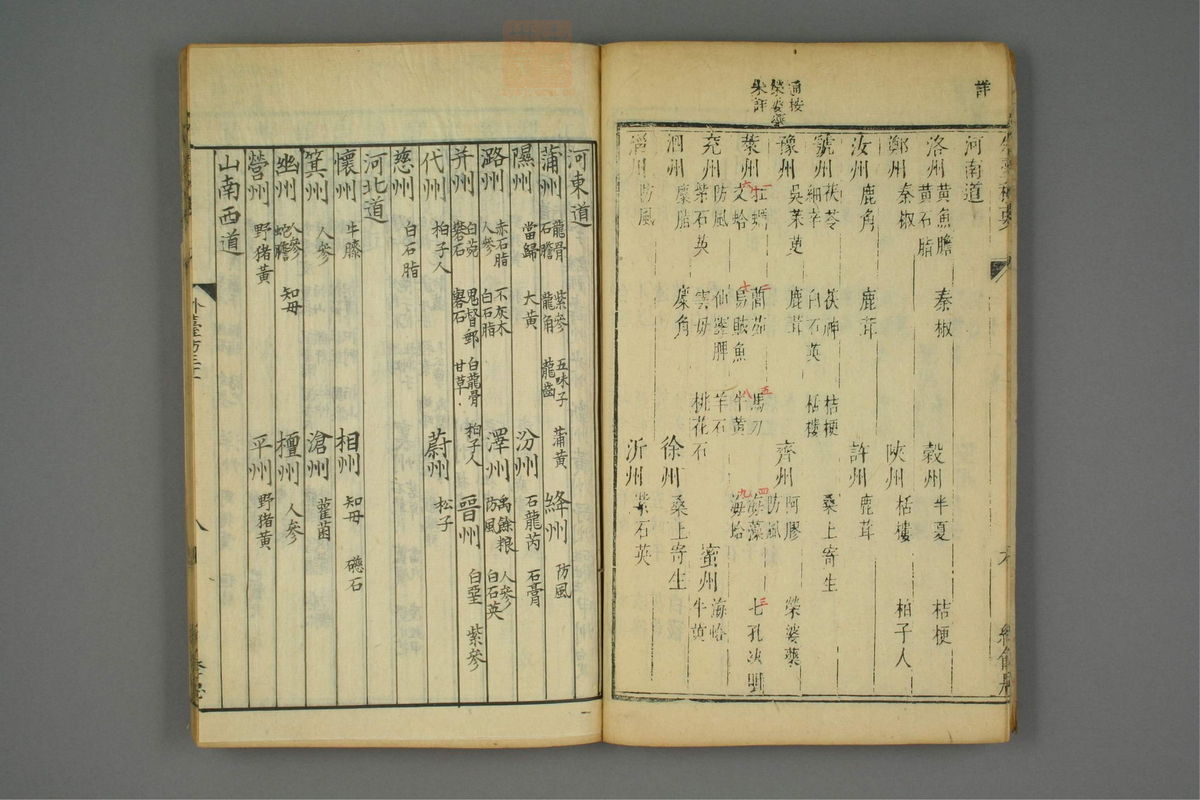 詳
通按
榮婆藥
未詳
河南道
洛州 黃魚膽 黃石脂 秦椒 穀州 半夏 桔梗
鄭州 秦椒 陝州 栝樓 柏子人
汝州 鹿角 鹿茸 許州 鹿茸
虢州 茯苓 細辛 茯神 白石英 桔梗 栝樓 桑上寄生
豫州 吳茱萸 鹿茸 齊州 阿膠 防風 榮婆藥
萊州 一牡蠣 六文蛤 二䕡茹 七烏賊魚 五馬刀 八牛黃 四海藻 九海蛤 三七孔決明
兖州 防風 紫石英 仙靈脾 雲母 羊石 桃花石 蜜州 海蛤 牛黃
泗州 麋脂 麋角 徐州 桑上寄生
淄州 防風 沂州 紫石英
河東道
蒲州 龍骨 石膽 紫參 龍角 五味子 龍齒 蒲黃 絳州 防風
隰州 當歸 大黃 汾州 石龍芮 石膏
潞州 赤石脂 人參 不灰木 白石脂 澤州 禹餘粮 防風 人參 白石英
并州 白菀 礜石 鬼督郵 礬石 白龍骨 甘草 柏子人 晉州 白堊 紫參
代州 柏子人 蔚州 松子
慈州 白石脂
河北道
懷州 牛膝 相州 知母 磁石
箕州 人參 滄州 雚菌
幽州 人參 蛇膽 知母 檀州 人參
營州 野猪黃 平州 野猪黃
山南西道
外臺方三十一
八